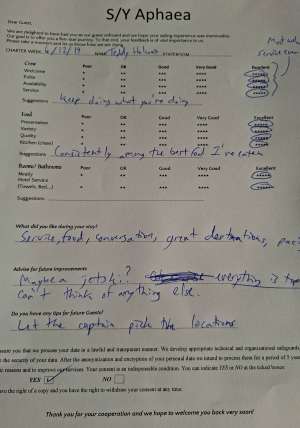 S/Y Aphaea
Dear Guest,
We are delighted to have had you on our guest onboard and we hope your sailing expectations were met.
Our goal is to offer you a first-class journey. To that end, your feedback is of vital importance to us.
Please take a moment and let us know how we are doing.
CHARTER WEEK: 6/12/19 NAME Teddy
Crew Poor OK Good Very Good Excellent
Welcome • •• ••• •••• •••••
Polite • •• ••• •••• •••••
Availability • •• ••• •••• •••••
Service • •• ••• •••• •••••
Suggestions: Keep doing what you're doing
Food Poor OK Good Very Good Excellent
Presentation • •• ••• •••• •••••
Variety • •• ••• •••• •••••
Quality • •• ••• •••• •••••
Kitchen (clean) • •• ••• •••• •••••
Suggestions: Consistently among the best food I've eaten
Rooms/ Bathrooms Poor OK Good Very Good Excellent
Hotel Service
(Towels, Bed...) • •• ••• •••• •••••
Suggestions:
What did you like during your way?
Service, food, conversation, great destinations,
Advise for future improvements
Maybe a jetski? everything is
Can't think of anything else.
Do you have any tips for future Guests?
Let the captain pick the locations
ensure you that we process your data in a lawful and transparent manner. We develop appropriate technical and organizational safeguards
the security of your data. After the anonymization and encryption of your personal data we intend to process them for a period of 5 year
reasons and to improve our services. Your consent is an indispensable condition. You can indicate YES or NO at the ticked boxes:
YES NO
have the right of a copy and you have the right to withdraw your consent at any time.
Thank you for your cooperation and we hope to welcome you back very soon!